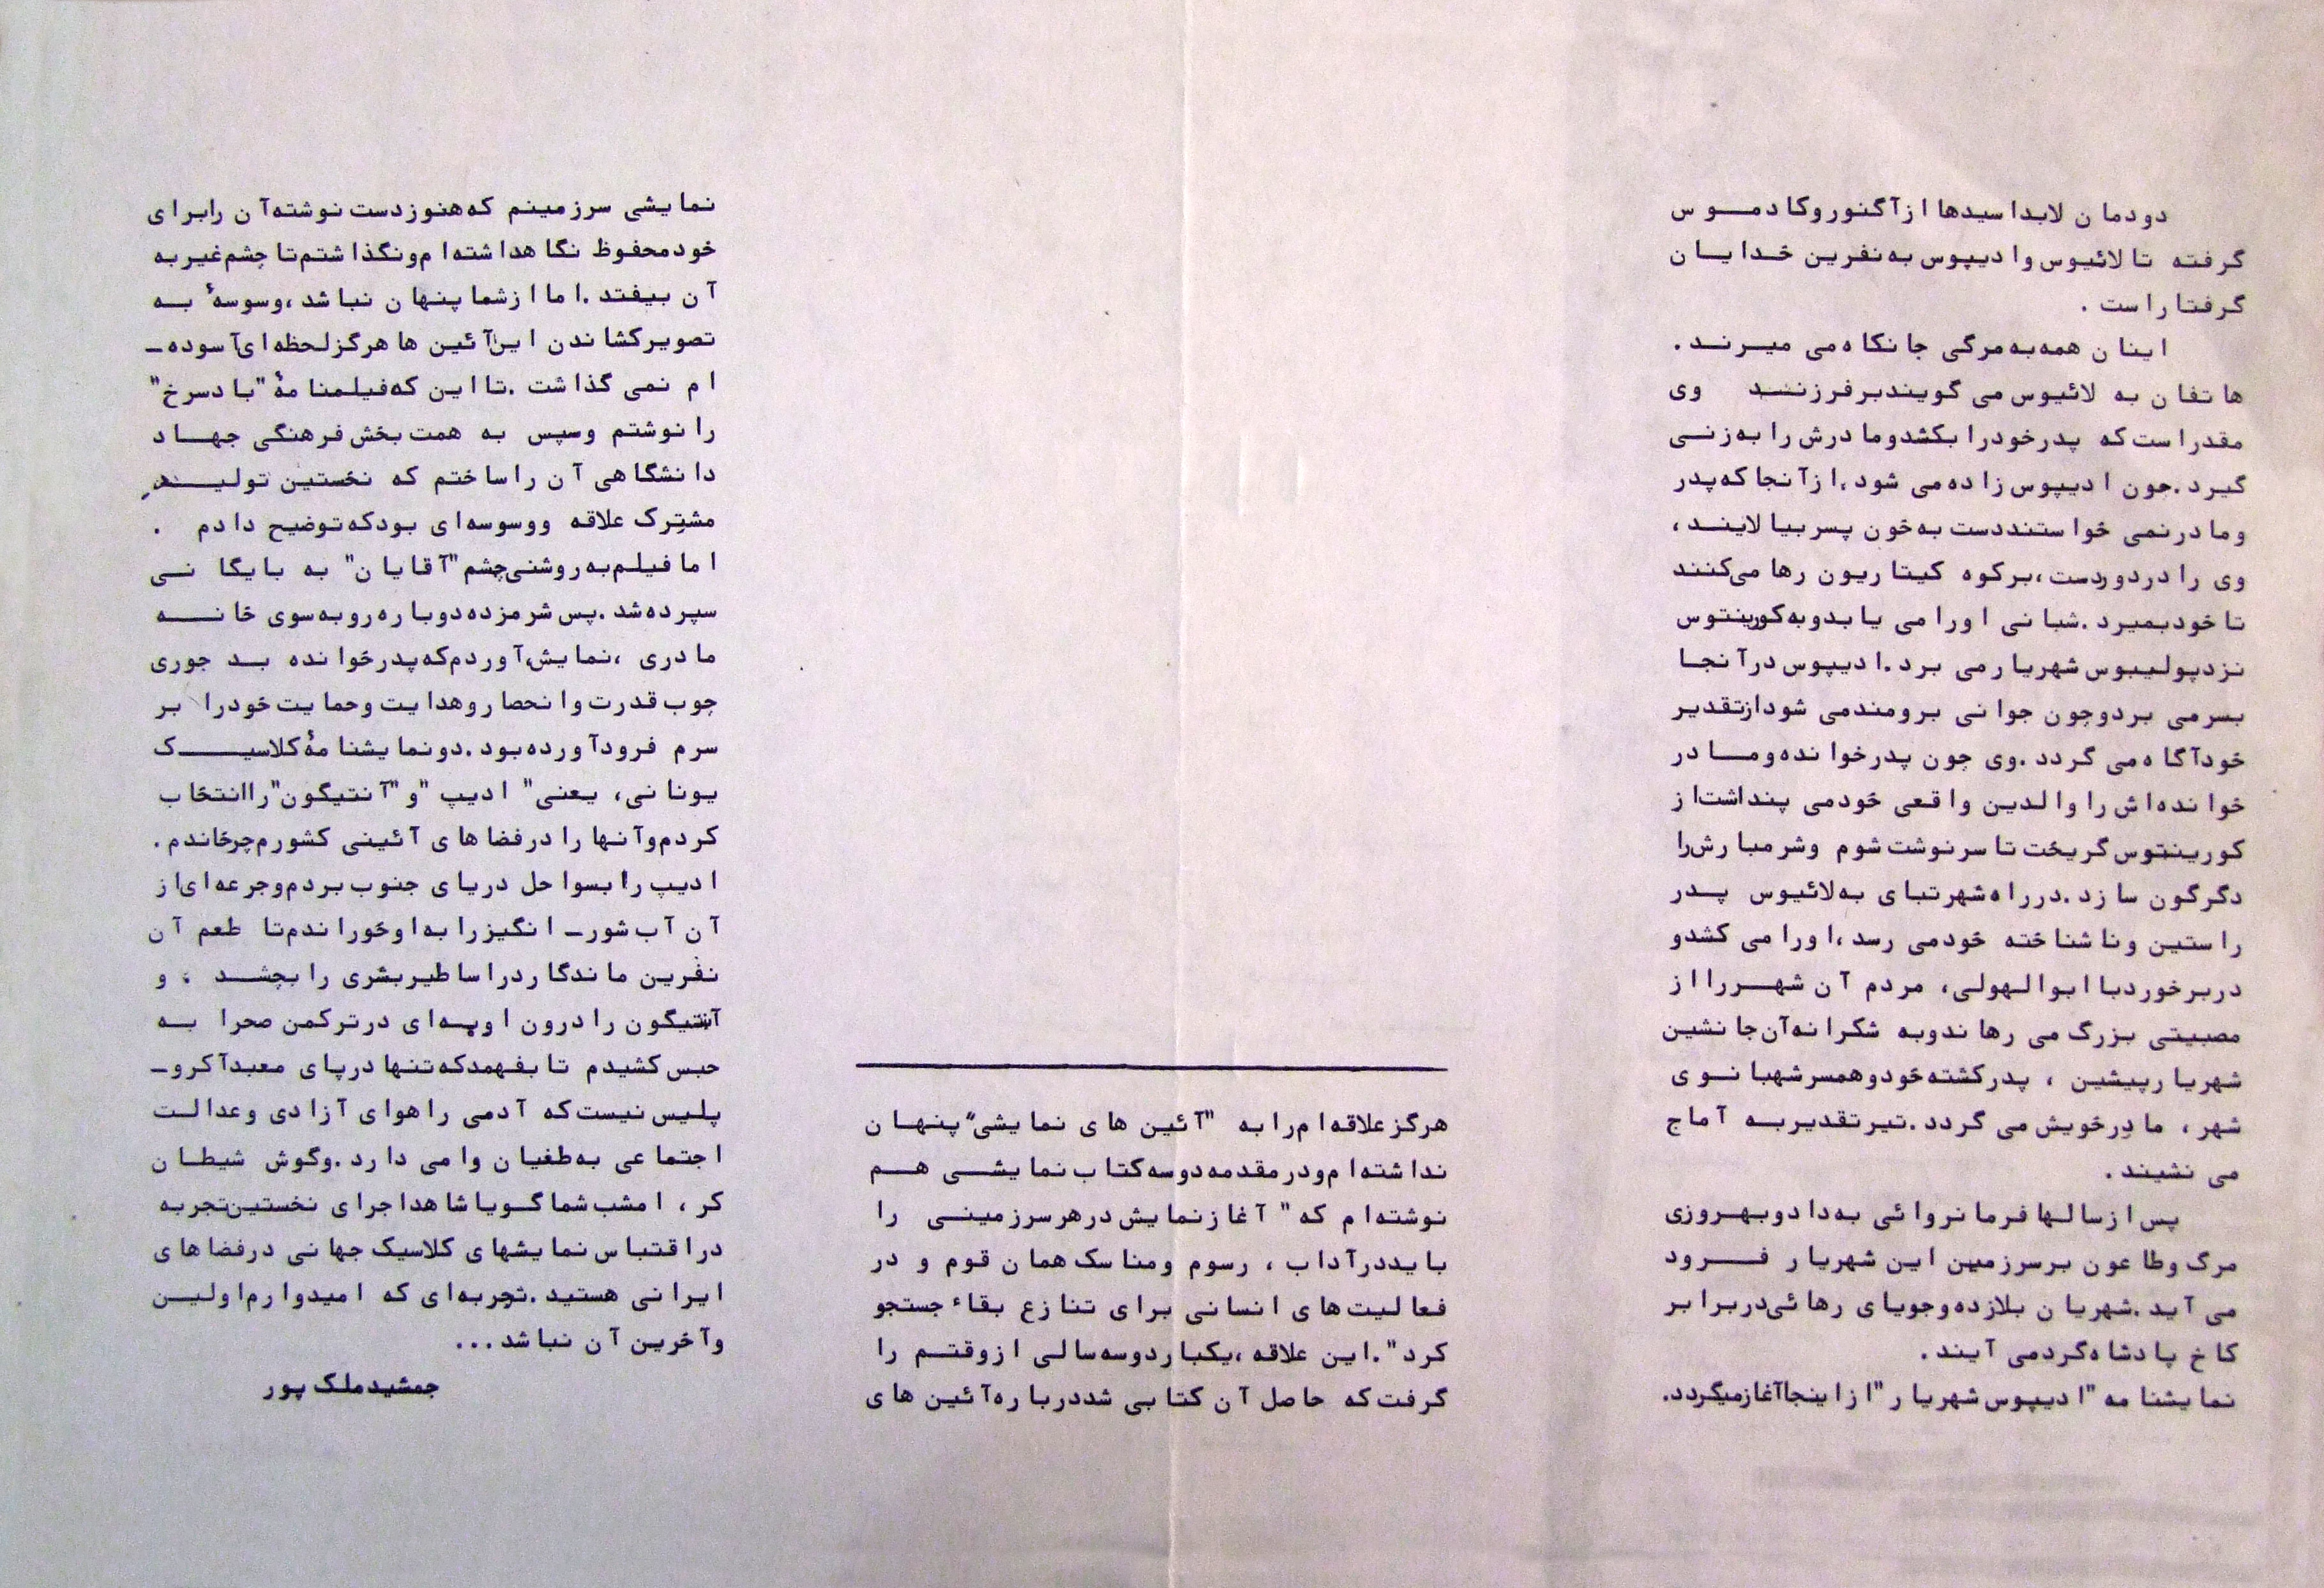 دودمان لابداسیدها از آگنور و کادموس
گرفته تا لائیوس و ادیپوس به نفرین خدایان
گرفتار است .
اینان همه به مرگی جانکاه می میرند .
هاتفان به لائیوس می گویند بر فرزند وی
مقدر است که پدر خود را بکشد و مادرش را به زنی
گیرد . چون ادیپوس زاده می شود ، از آنجا که پدر
و مادر نمی خواستند دست به خون پسر بیالایند ،
وی را در دوردست ، بر کوه کیتاریون رها می کنند
تا خود بمیرد . شبانی او را می یابد و به کورینتوس
نزد پولیبوس شهریار می برد . ادیپوس در آنجا
بسر می برد و چون جوانی برومند می شود از تقدیر
خود آگاه می گردد . وی چون پدرخوانده و مادر
خوانده اش را والدین واقعی خود می پنداشت از
کورینتوس گریخت تا سرنوشت شوم و شرمبارش را
دگرگون سازد . در راه شهر تبای به لائیوس پدر
راستین و ناشناخته خود می رسد ، او را می کشد و
در برخورد با ابوالهولی ، مردم آن شهر را از
مصبیتی بزرگ می رهاند و به شکرانه آن جانشین
شهریار پیشین ، پدر کشته خود و همسر شهبانوی
شهر ، مادر خویش می گردد . تیر تقدیر به آماج
می نشیند .
پس از سالها فرمانروائی به داد و بهروزی
مرگ و طاعون بر سرزمین این شهریار فرود
می آید . شهریان بلازده و جویای رهائی در برابر
کاخ پادشاه گرد می آیند .
نمایشنامه "ادیپوس شهریار" از اینجا آغاز میگردد.
هرگز علاقه ام را به "آئین های نمایشی" پنهان
نداشته ام و در مقدمه دو سه کتاب نمایشی هم
نوشته ام که "آغاز نمایش در هر سرزمینی را
باید در آداب ، رسوم و مناسک همان قوم و در
فعالیت های انسانی برای تنازع بقاء جستجو
کرد ". این علاقه ، یکبار دو سه سالی از وقتم را
گرفت که حاصل آن کتابی شد درباره آئین های
نمایشی سرزمینم که هنوز دست نوشته آن را برای
خود محفوظ نگاهداشته ام و نگذاشتم تا چشم غیر به
آن بیفتد . اما از شما پنهان نباشد ، وسوسهٔ به
تصویر کشاندن این آئین ها هرگز لحظه ای آسوده ـ
ام نمی گذاشت . تا این که فیلمنامهٔ "باد سرخ"
را نوشتم و سپس به همت بخش فرهنگی جهاد
دانشگاهی آن را ساختم که نخستین تولید
مشترک علاقه و وسوسه ای بود که توضیح دادم .
اما فیلم به روشنی چشم "آقایان" به بایگانی
سپرده شد . پس شرمزده دوباره رو به سوی خانه
مادری ، نمایش ، آوردم که پدرخوانده بد جوری
چوب قدرت و انحصار و هدایت و حمایت خود را بر
سرم فرود آورده بود . دو نمایشنامهٔ کلاسیک
یونانی ، یعنی "ادیپ" و "آنتیگون" را انتخاب
کردم و آنها را در فضاهای آئینی کشورم چرخاندم .
ادیپ را بسواحل دریای جنوب بردم و جرعه ای از
آن آب شور ـ انگیز را به او خوراندم تا طعم آن
نفرین ماندگار در اساطیر بشری را بچشد ، و
آنتیگون را درون اوبه ای در ترکمن صحرا به
حبس کشیدم تا بفهمد که تنها در پای معبد آکرو ـ
پلیس نیست که آدمی را هوای آزادی و عدالت
اجتماعی به طغیان وا می دارد . وگوش شیطان
کر ، امشب شما گویا شاهد اجرای نخستین تجربه
در اقتباس نمایشهای کلاسیک جهانی در فضاهای
ایرانی هستید . تجربه ای که امیدوارم اولین
و آخرین آن نباشد ...
جمشید ملک پور